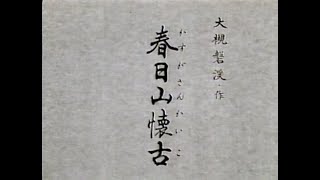 大槻磐渓・作
春日山懐古
かすがさんかいこ